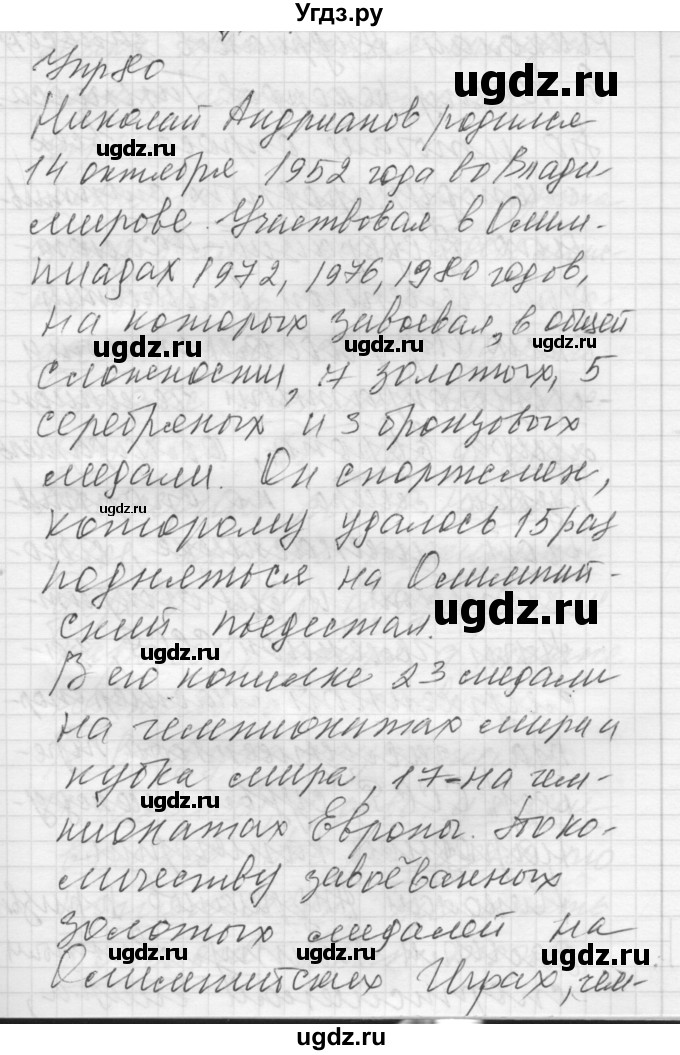 Угдз.ру
Упр 80
ugdz.ru
Николай Андрианов родился
ugdz.ru
14 октября 1952 года во Влади-
мирове. Участвовал в Олим-
ugdz.ru
пиадах 1972, 1976, 1980 годов,
на которых завоевал, в общей
ugdz.ru ugdz.ru
сложности, 7 золотых, 5
серебряных и 3 бронзовых
медали. Он спортсмен,
ugdz.ru
которому удалось 15 раз
подняться на Олимпий-
ugdz.ru
ский пьедестал.
ugdz.ru
В его копилке 23 медали
на чемпионатах мира и
кубка мира, 17-на чем-
ugdz.ru
пионатах Европы. По ко-
личеству завоёванных
золотых медалей на
ugdz.ru ugdz.ru
Олимпийских Играх, чем-
ugdz.ru